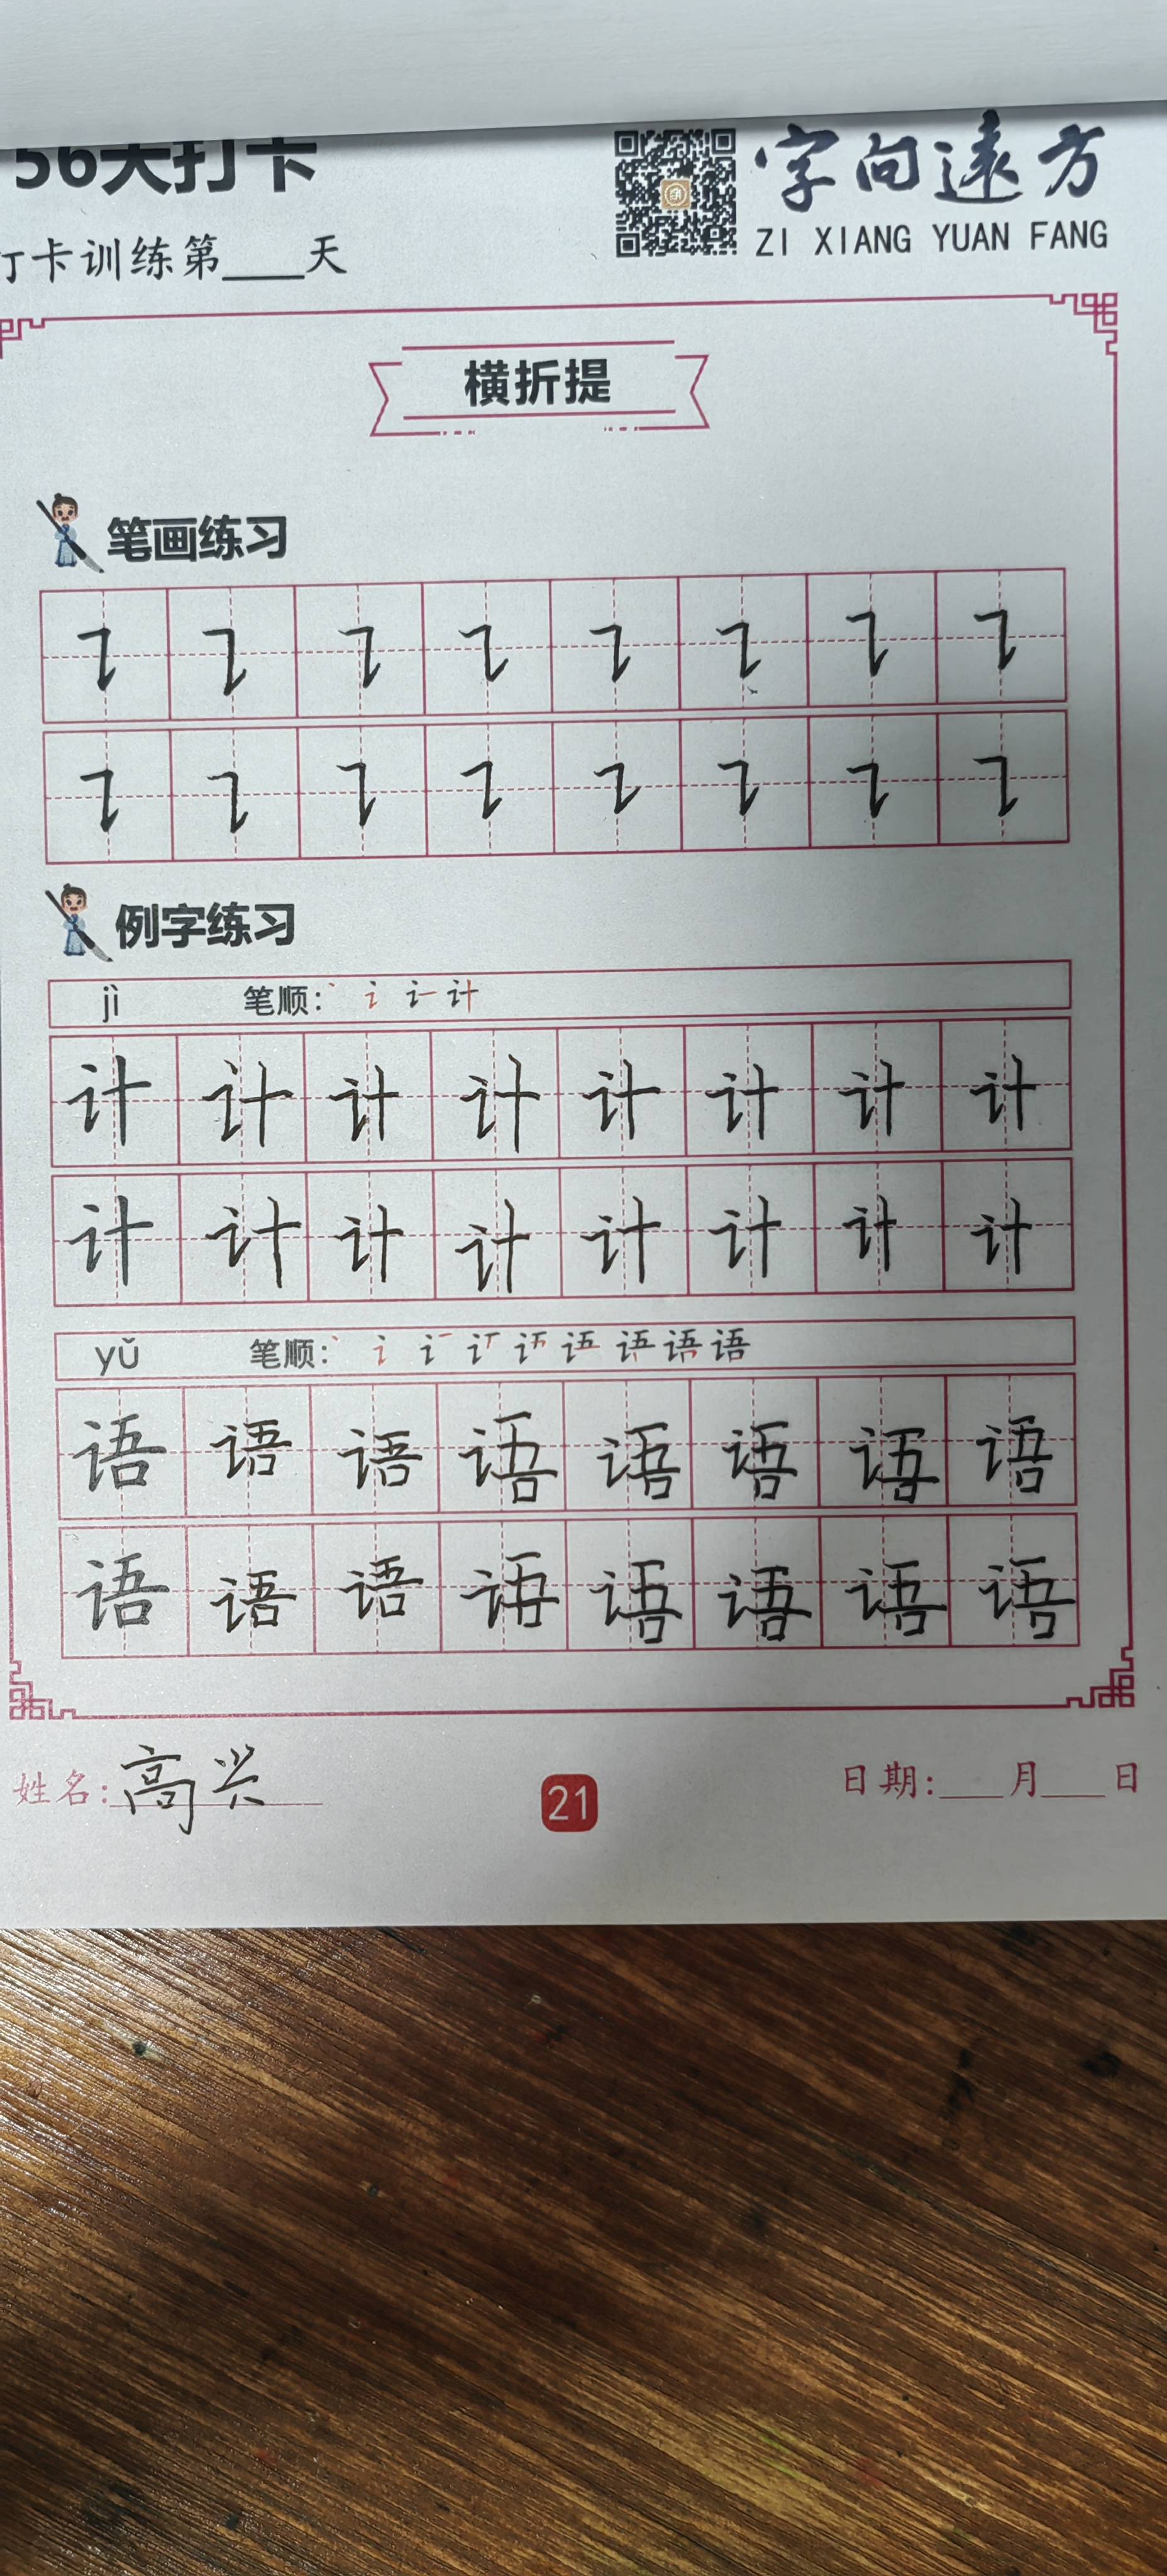 56天打卡
字向远方
打卡训练第____天
ZI XIANG YUAN FANG
横折提
笔画练习
㇊ ㇊ ㇊ ㇊ ㇊ ㇊ ㇊ ㇊
㇊ ㇊ ㇊ ㇊ ㇊ ㇊ ㇊ ㇊
例字练习
jì 笔顺: 丶 讠 计
计 计 计 计 计 计 计 计
计 计 计 计 计 计 计 计
yǔ 笔顺: 丶 讠 语
语 语 语 语 语 语 语 语
语 语 语 语 语 语 语 语
姓名:高兴
21
日期:___月___日